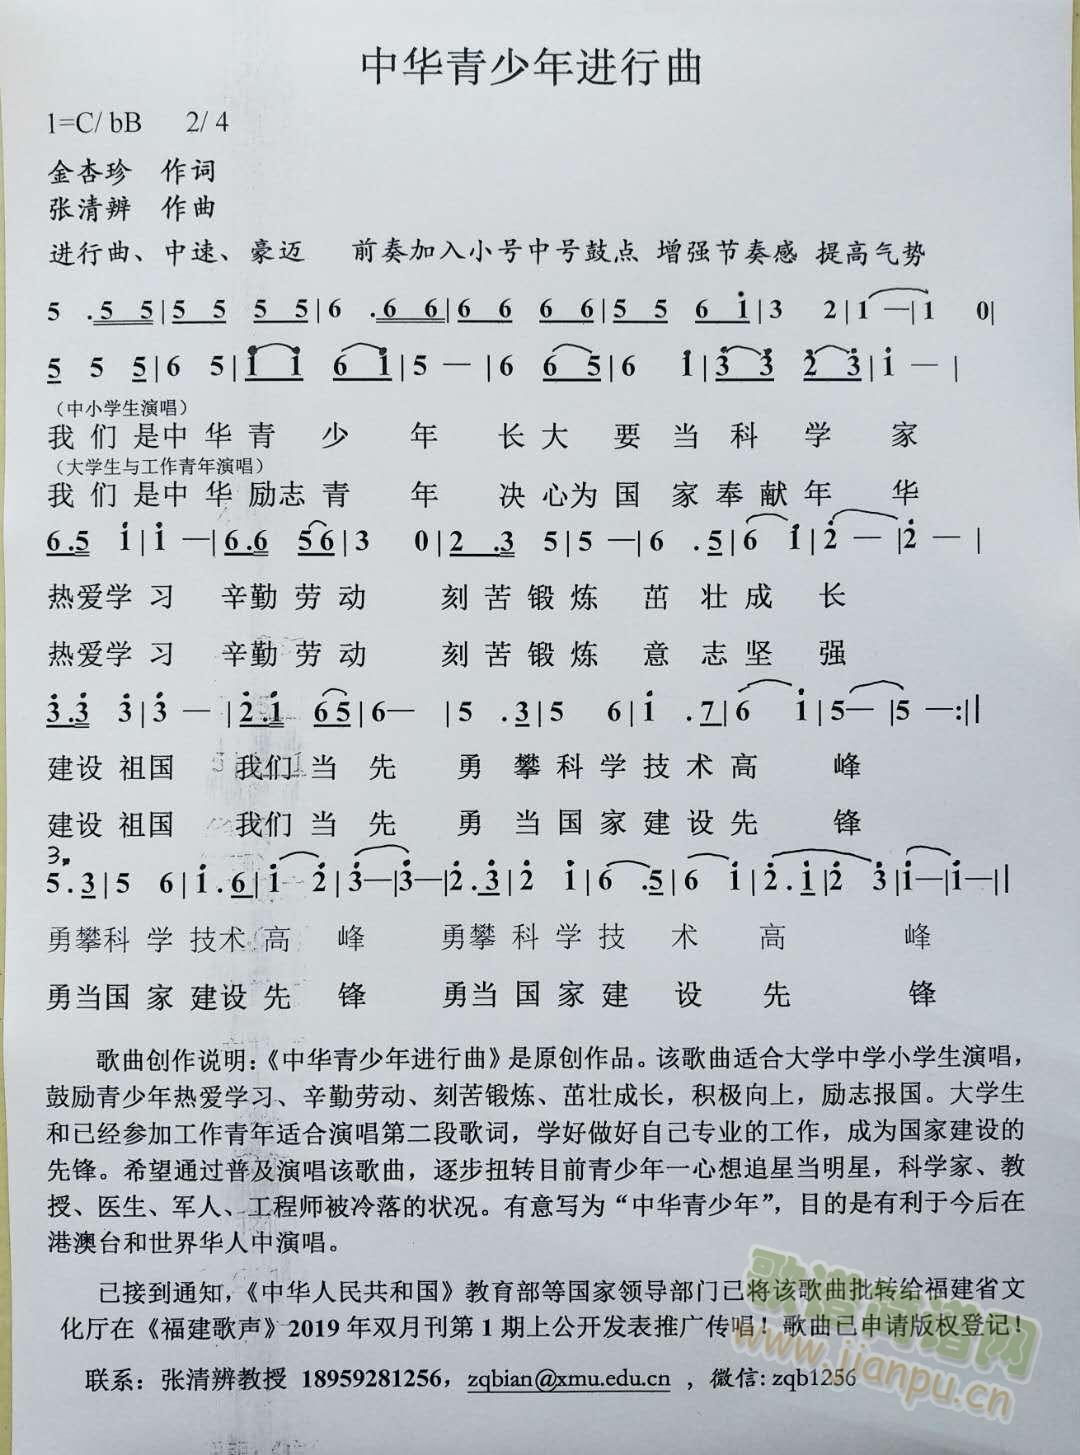 中华青少年进行曲
1=C/ bB 2/ 4
金杏珍 作词
张清辨 作曲
进行曲、中速、豪迈 前奏加入小号中号鼓点 增强节奏感 提高气势
5 .5 5|5 5 5 5|6 .6 6|6 6 6 6|5 5 6 i|3 2|1 —|1 0|
5 5 5|6 5|i i 6 i|5 — |6 6 5|6 i|3 3 2 3|i — |
（中小学生演唱）
我 们 是中 华 青 少 年 长 大 要 当 科 学 家
（大学生与工作青年演唱）
我 们 是中 华 励志 青 年 决 心为 国 家 奉 献 年 华
6.5 i|i —|6.6 56|3 0|2 .3 5|5 —|6 .5|6 i|2 — |2 — |
热爱学 习 辛勤 劳 动 刻 苦 锻 炼 茁 壮 成 长
热爱学 习 辛勤 劳 动 刻 苦 锻 炼 意 志 坚 强
3.3 3|3 — |2.i 65|6— |5 .3|5 6|i .7|6 i|5— |5 —:||
建设 祖国 我们 当 先 勇 攀 科 学 技 术 高 峰
建设 祖国 我们 当 先 勇 当 国 家 建 设 先 锋
3.
5.3|5 6|i.6|i 2|3—|3—|2.3|2 i|6 .5|6 i|2.i|2 3|i—|i—||
勇攀科 学 技术 高 峰 勇攀 科 学 技 术 高 峰
勇当国 家 建设 先 锋 勇当 国 家 建 设 先 锋
歌曲创作说明：《中华青少年进行曲》是原创作品。该歌曲适合大学中学小学生演唱，
鼓励青少年热爱学习、辛勤劳动、刻苦锻炼、茁壮成长，积极向上，励志报国。大学生
和已经参加工作青年适合演唱第二段歌词，学好做好自己专业的工作，成为国家建设的
先锋。希望通过普及演唱该歌曲，逐步扭转目前青少年一心想追星当明星，科学家、教
授、医生、军人、工程师被冷落的状况。有意写为“中华青少年”，目的是有利于今后在
港澳台和世界华人中演唱。
已接到通知，《中华人民共和国》教育部等国家领导部门已将该歌曲批转给福建省文
化厅在《福建歌声》2019 年双月刊第 1 期上公开发表推广传唱！歌曲已申请版权登记！
联系：张清辨教授 18959281256，zqbian@xmu.edu.cn ，微信: zqb1256
歌谱简谱网
www.jianpu.cn